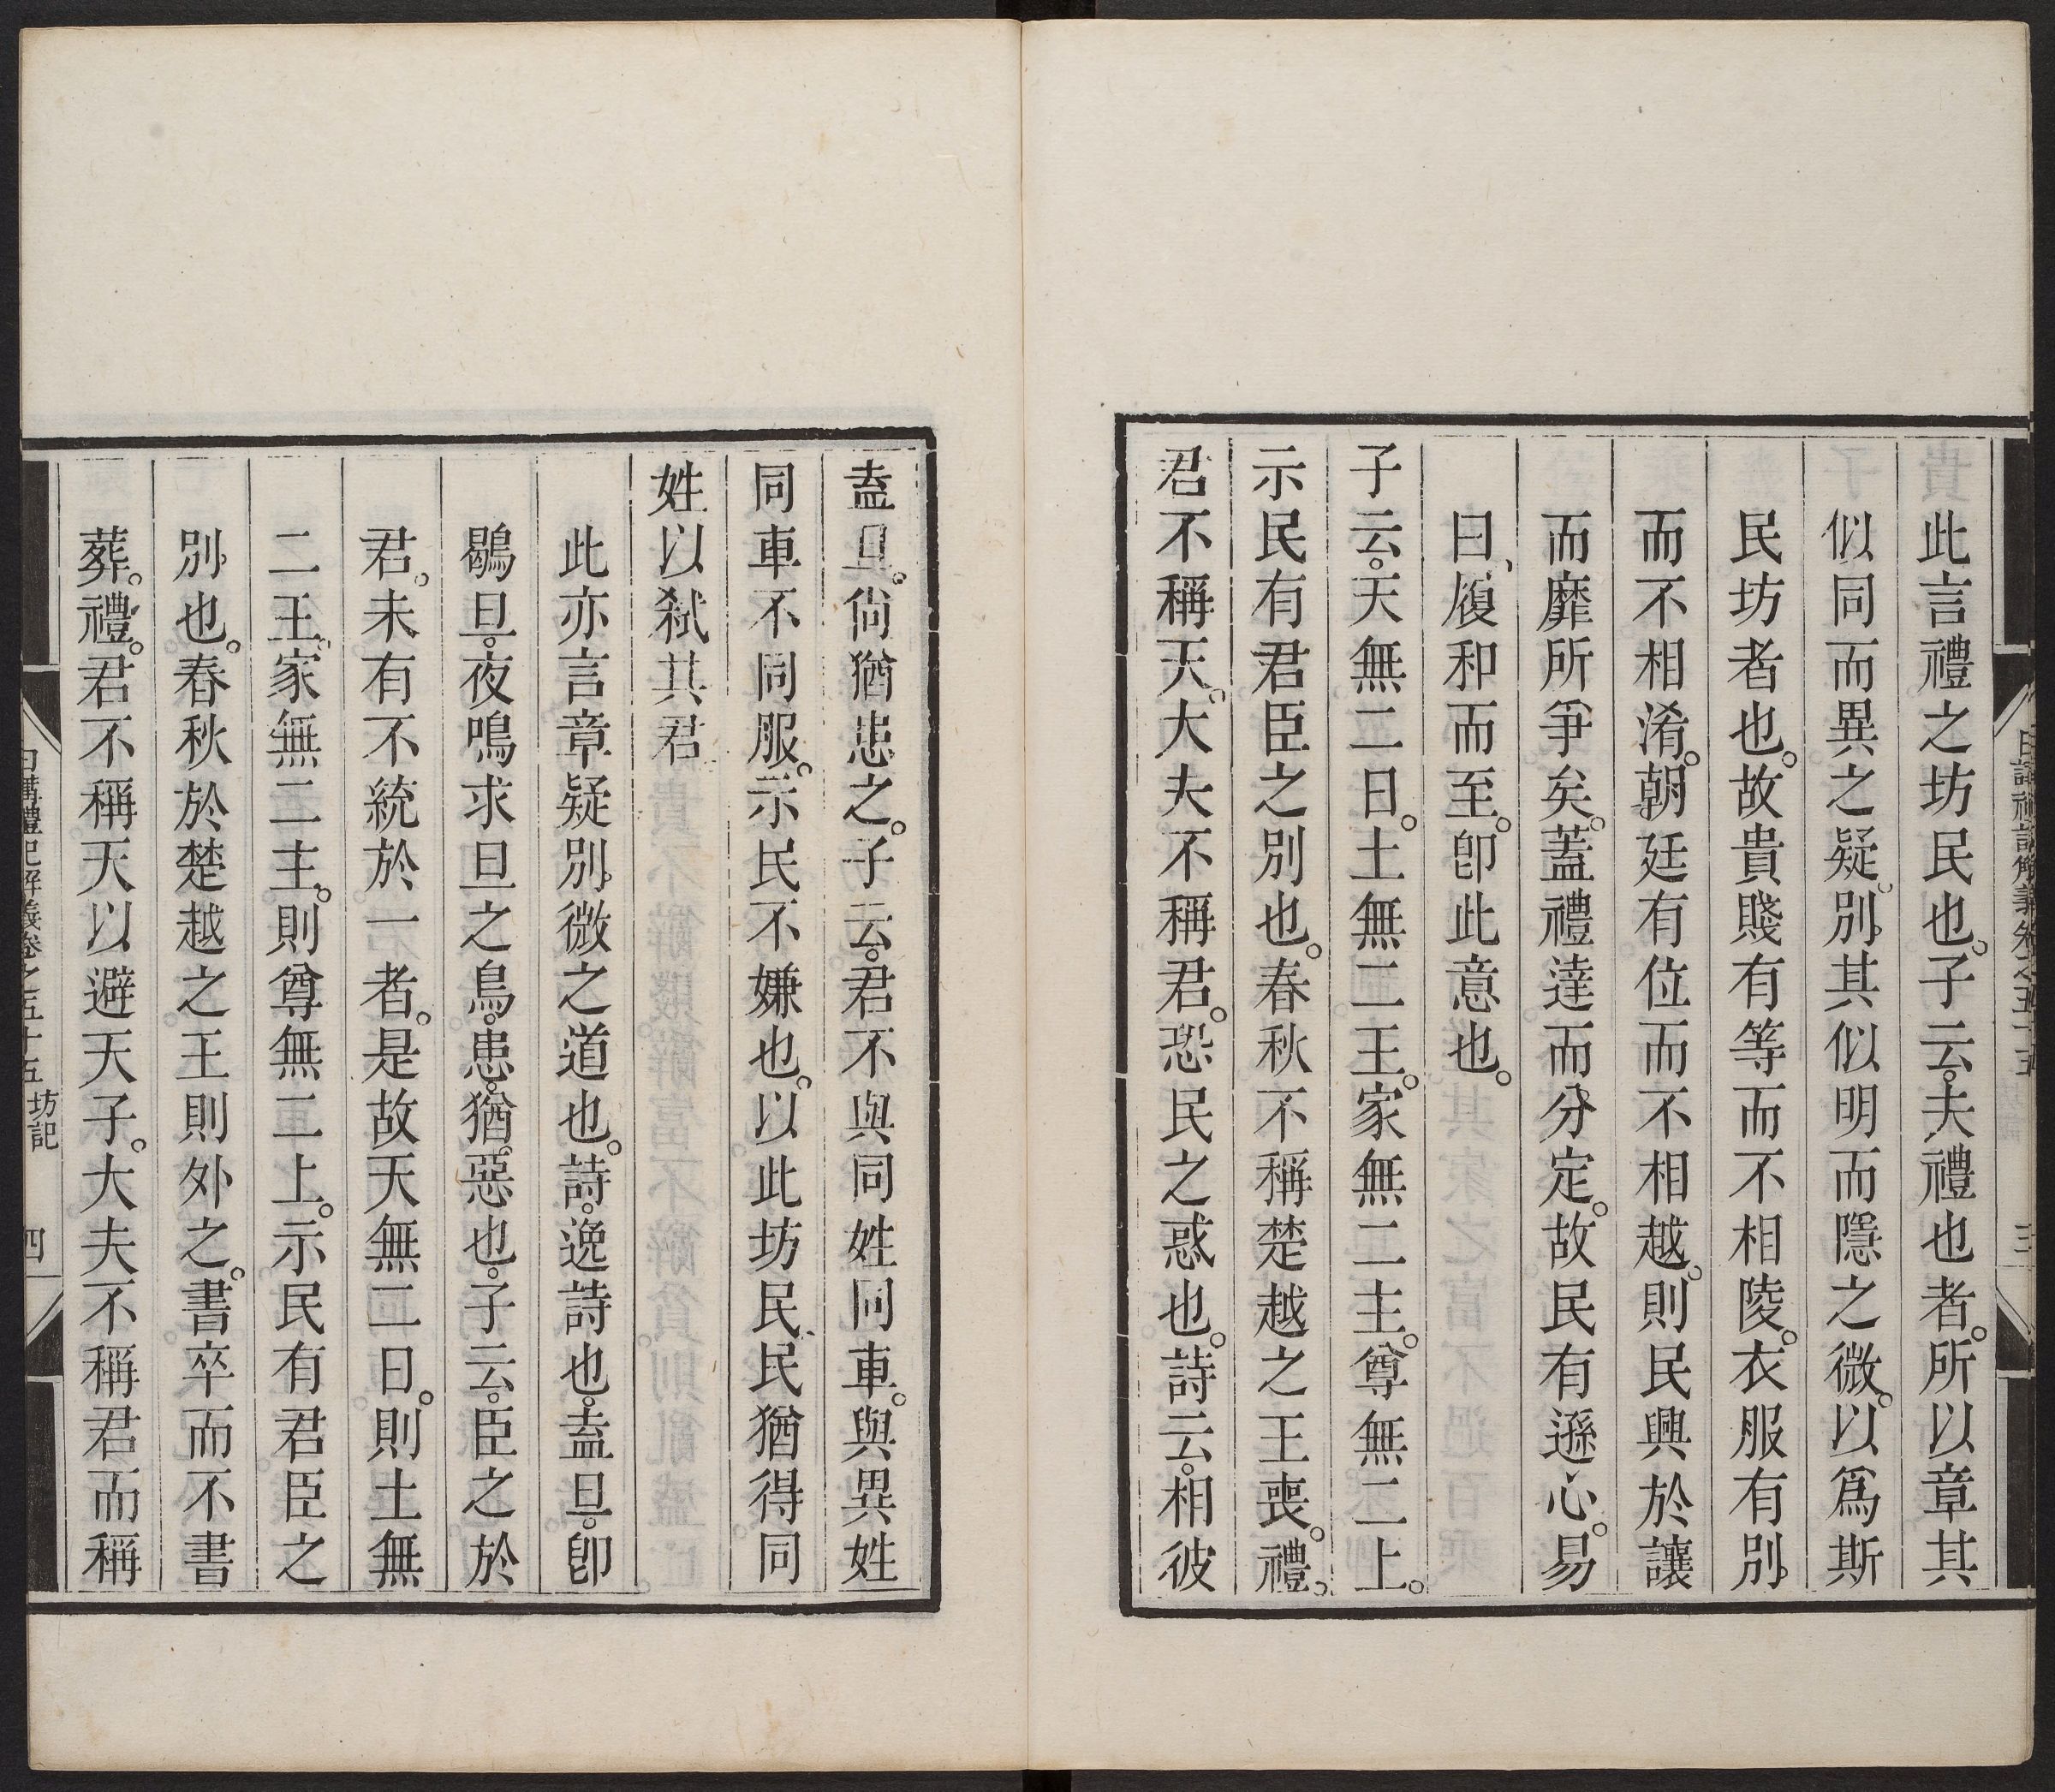 此言禮之坊民也。子云。夫禮也者。所以章其
似同而異之疑。別其似明而隱之微。以爲斯
民坊者也。故貴賤有等而不相陵。衣服有別。
而不相淆。朝廷有位而不相越。則民興於讓
而靡所爭矣。蓋禮達而分定。故民有遜心。易
曰、履和而至。卽此意也。
子云。天無二日。土無二王。家無二主。尊無二上。
示民有君臣之別也。春秋不稱楚越之王喪。禮。
君不稱天。大夫不稱君。恐民之惑也。詩云。相彼
盍旦。尙猶患之。子云。君不與同姓同車。與異姓
同車不同服。示民不嫌也。以此坊民、民猶得同
姓以弑其君
此亦言章疑別微之道也。詩。逸詩也。盍旦。卽
鶡旦。夜鳴求旦之鳥。患。猶惡也。子云。臣之於
君。未有不統於一者。是故天無二日。則土無
二王。家無二主。則尊無二上。示民有君臣之
別也。春秋於楚越之王則外之。書卒而不書
葬。禮。君不稱天以避天子。大夫不稱君而稱
日講禮記解義卷之五十五 坊記 四